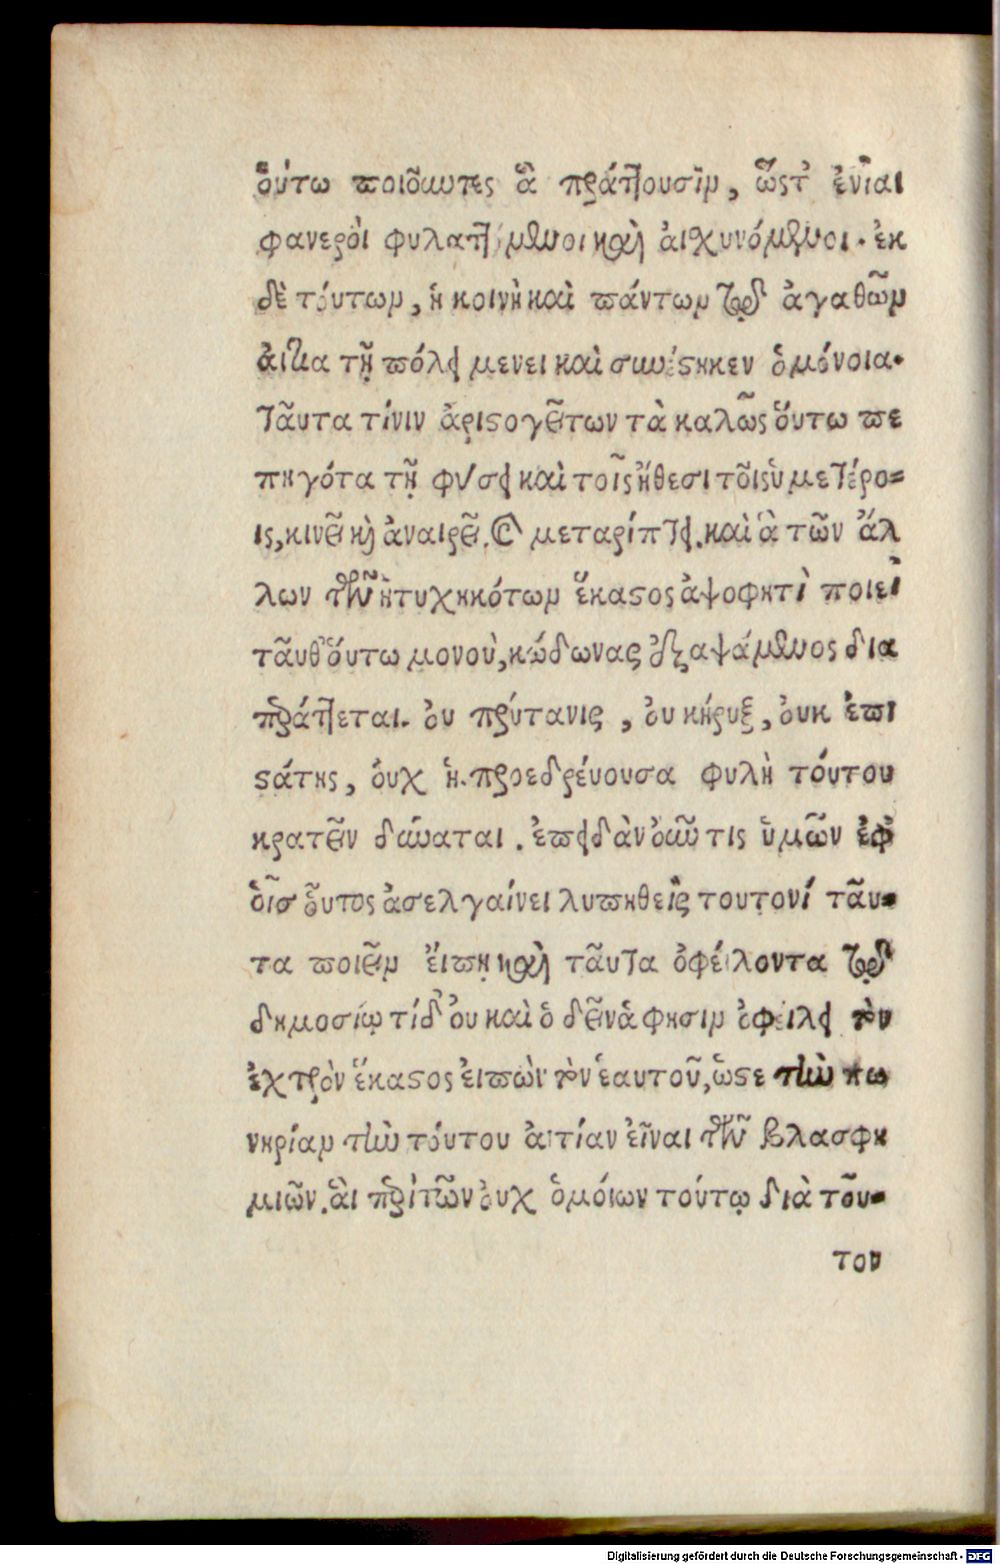 ὅυτω ποιοῦντες ἃ πράττουσιν, ὥστ' ἐνίαι
φανερὸι φυλαττόμενοι καὶ ἀισχυνόμενοι. ἐκ
δὲ τόυτων, ἡ κοινὴ καὶ πάντων τῶν ἀγαθῶν
ἀιτία τῇ πόλει μενει καὶ συνέστηκεν ὁμόνοια.
Ταῦτα τίνιν ἀριστογεῖτων τὰ καλῶς ὅυτω πε
πηγότα τῇ φύσει καὶ τοῖς ἤθεσι τοῖς ὑμετέρο-
ις, κινεῖ καὶ ἀναιρεῖ. καὶ μεταρίπτει. καὶ ἃ τῶν ἄλ
λων τῶν ἠτυχηκότων ἕκαστος ἀψοφητὶ ποιεῖ
ταῦθ' ὅυτω μονοὺ, κώδωνας ἐξαψάμενος δια
πράττεται. ὀυ πρύτανις, ὀυ κήρυξ, ὀυκ ἐπι
στάτης, ὀυχ ἡ προεδρέυουσα φυλὴ τόυτου
κρατεῖν δύναται. ἐπειδὰν ὀῦν τις ὑμῶν ἐφ'
ὁῖσ ὅυτος ἀσελγαίνει λυπηθεὶς τουτονί ταῦ-
τα ποιεῖν ἔιπῃ καὶ ταῦτα ὀφέιλοντα τῶν
δημοσίῳ τίδ' ὀυ καὶ ὁ δεῖνἁ φησιν ὀφείλει τὸν
ἐχτρὸν ἕκαστος ἐιπὼν τὸν ἑαυτοῦ, ὥστε τὴν πω
νηρίαν τὴν τόυτου ἀιτίαν εἶναι τῶν βλασφη
μιῶν. ἃι πρὶ τῶν ὀυχ ὁμόιων τούτῳ διὰ τοῦ-
τον